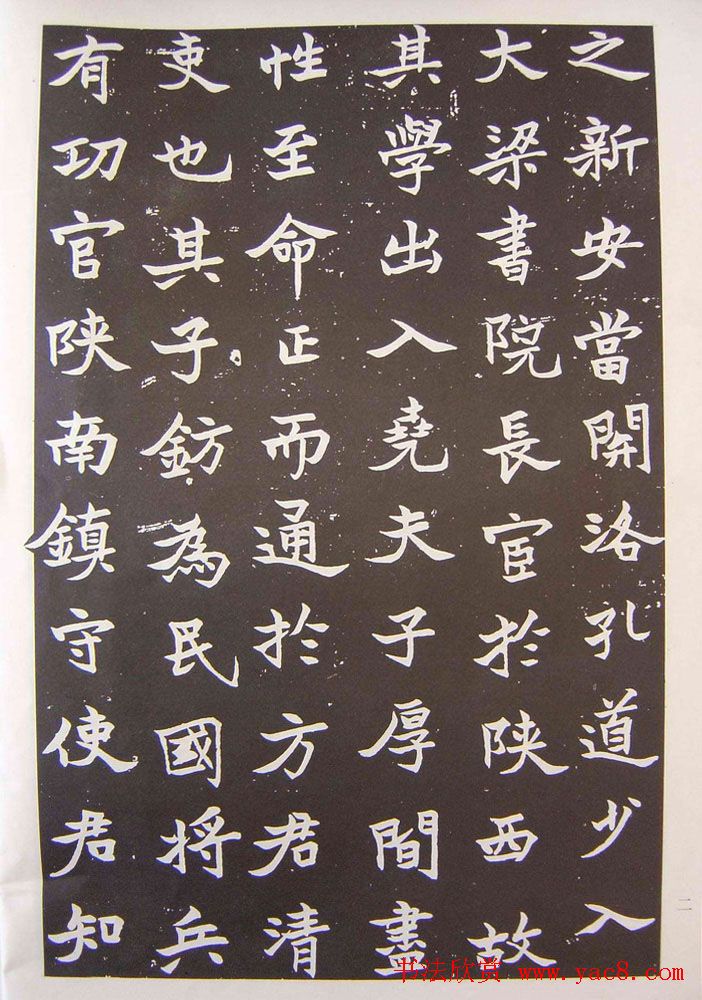 之新安當開洛孔道少入
大梁書院長宦於陕西故
其學出入堯夫子厚間盡
性至命正而通於方君清
吏也其子鈁為民國将兵
有功官陕南鎮守使君知
二
书法欣赏 www.yac8.com